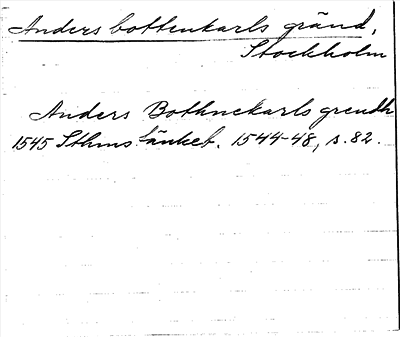 Anders bottenkarls gränd,
Stockholm
Anders Bothnekarls grendh
1545 Sthms tänkeb. 1544-48, s. 82.